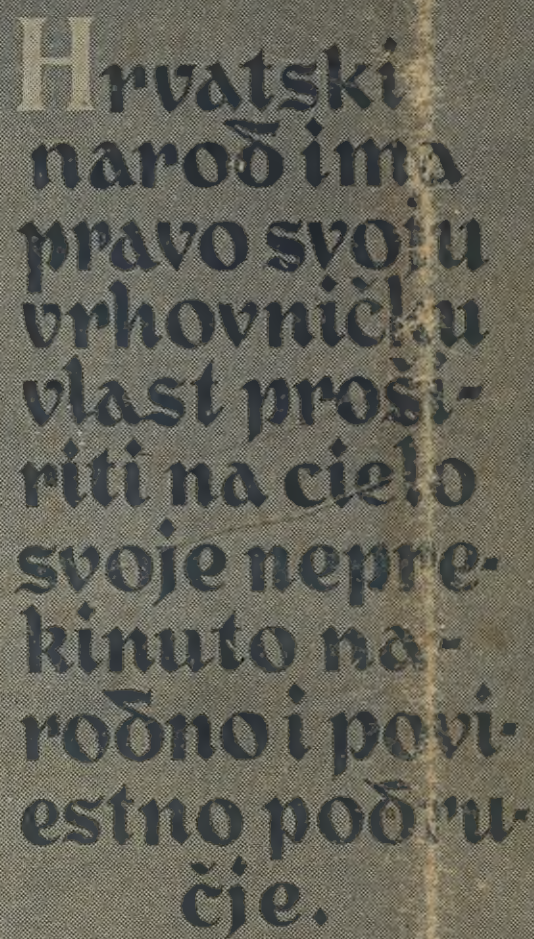 Hrvatski
narod ima
pravo svoju
vrhovničku
vlast proši-
riti na cielo
svoje nepre-
kinuto na-
rodno i povi-
estno podru-
čje.